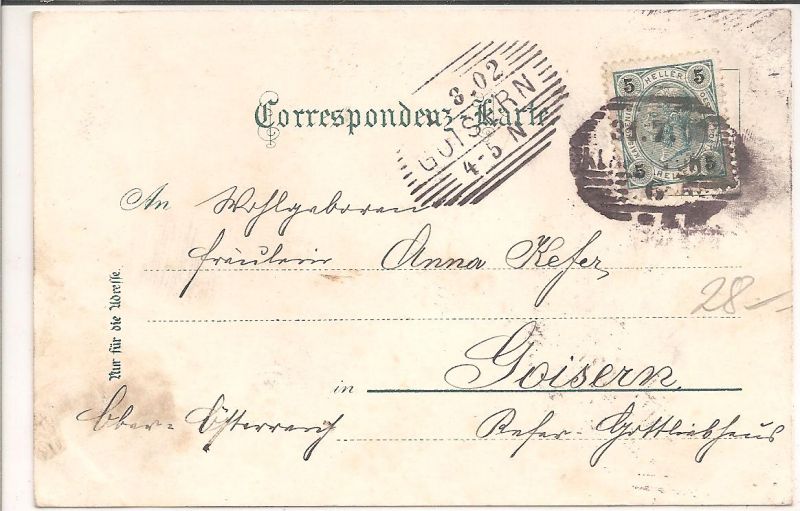 3.02
GOISERN
4-5 N
5 HELLER 5
31.7.
5 5
Correspondenz-Karte
An Wohlgeboren
Fräulein Anna Kefer
28-
Nur für die Adresse.
in Goisern
Ober-Österreich
Kefer Gottliebhaus